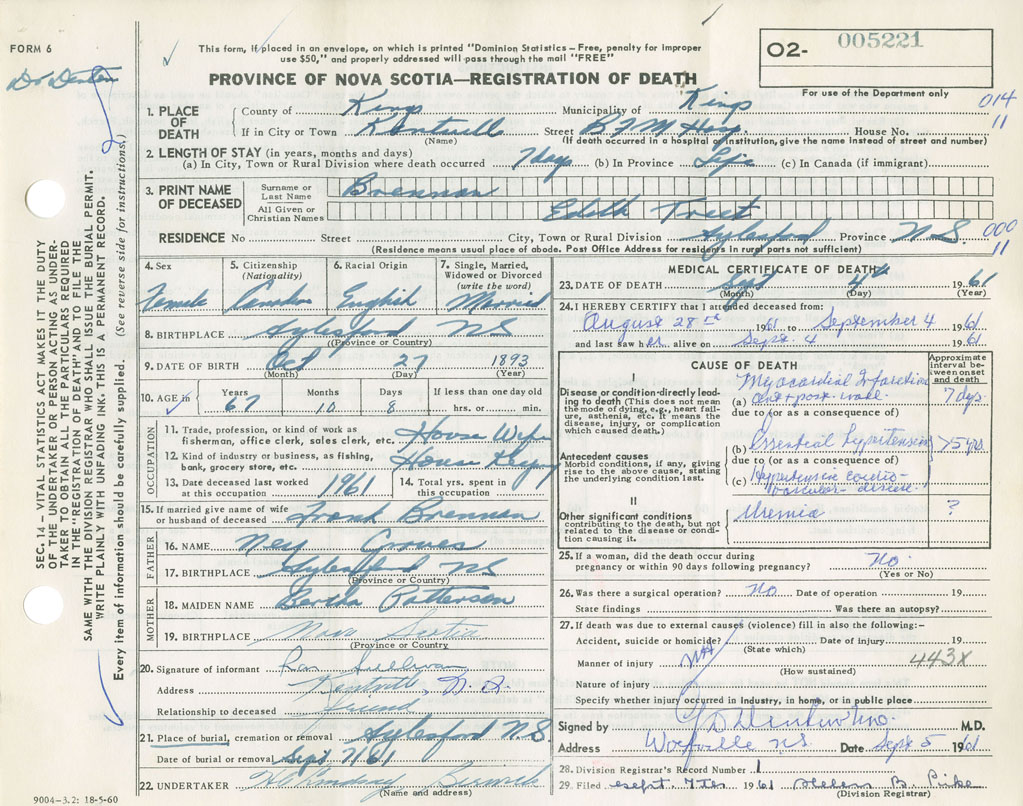 FORM 6
Dr Denton
This form, if placed in an envelope, on which is printed "Dominion Statistics—Free, penalty for improper
use $50," and properly addressed will pass through the mail "FREE"
PROVINCE OF NOVA SCOTIA—REGISTRATION OF DEATH
O2- 005221
For use of the Department only
014
11
1. PLACE OF DEATH
County of Kings Municipality of Kings
If in City or Town Kentville Street B F M Hosp. House No.
(Name) (If death occurred in a hospital or institution, give the name instead of street and number)
2. LENGTH OF STAY (in years, months and days)
(a) In City, Town or Rural Division where death occurred 7 days (b) In Province Life (c) In Canada (if immigrant)
3. PRINT NAME OF DECEASED
Surname or Last Name Brennan
All Given or Christian Names Edith Treet
RESIDENCE No Street City, Town or Rural Division Aylesford Province N.S.
(Residence means usual place of abode. Post Office Address for residents in rural parts not sufficient)
000
11
4. Sex Female
5. Citizenship (Nationality) Canadian
6. Racial Origin English
7. Single, Married, Widowed or Divorced (write the word) Married
8. BIRTHPLACE Aylesford NS
(Province or Country)
9. DATE OF BIRTH Oct 27 1893
(Month) (Day) (Year)
10. AGE in Years 67 Months 10 Days 8 If less than one day old hrs. or min.
OCCUPATION
11. Trade, profession, or kind of work as
fisherman, office clerk, sales clerk, etc. House Wife
12. Kind of industry or business, as fishing,
bank, grocery store, etc. House Keeping
13. Date deceased last worked at this occupation 1961
14. Total yrs. spent in this occupation
15. If married give name of wife or husband of deceased Frank Brennan
FATHER
16. NAME Ney Groves
17. BIRTHPLACE Aylesford NS
(Province or Country)
MOTHER
18. MAIDEN NAME Bertha Patterson
19. BIRTHPLACE Nova Scotia
(Province or Country)
20. Signature of informant Ran Sullivan
Address Kentville, N.S.
Relationship to deceased Friend
21. Place of burial, cremation or removal Aylesford N.S.
Date of burial or removal Sept 7/61
22. UNDERTAKER
(Name and address)
9004-3.2: 18-5-60
MEDICAL CERTIFICATE OF DEATH
23. DATE OF DEATH Sept 4th 1961
(Month) (Day) (Year)
24. I HEREBY CERTIFY that I attended deceased from:
August 28th 1961 to September 4 1961
and last saw her alive on Sept. 4 1961
CAUSE OF DEATH
Approximate interval between onset and death
I
Disease or condition directly leading to death (This does not mean the mode of dying, e.g., heart failure, asthenia, etc. It means the disease, injury, or complication which caused death.)
(a) Myocardial Infarction
Ant & post. wall 7 dys.
due to (or as a consequence of)
Antecedent causes
Morbid conditions, if any, giving rise to the above cause, stating the underlying condition last.
(b) Essential hypertension >5 yrs.
due to (or as a consequence of)
(c) Hypertensive cardio-
vascular disease
II
Other significant conditions
contributing to the death, but not related to the disease or condition causing it.
Uremia ?
25. If a woman, did the death occur during
pregnancy or within 90 days following pregnancy? No
(Yes or No)
26. Was there a surgical operation? No Date of operation 19
State findings Was there an autopsy?
27. If death was due to external causes (violence) fill in also the following:—
Accident, suicide or homicide? Date of injury 19
(State which)
Manner of injury 443X
(How sustained)
Nature of injury
Specify whether injury occurred in industry, in home, or in public place
Signed by G D Denton M.D.
Address Wolfville N.S. Date Sept 5 1961
28. Division Registrar's Record Number 1
29. Filed Sept 7th 1961 Helen B. Pinke
(Division Registrar)
SEC. 14—VITAL STATISTICS ACT MAKES IT THE DUTY
OF THE UNDERTAKER OR PERSON ACTING AS UNDER-
TAKER TO OBTAIN ALL THE PARTICULARS REQUIRED
IN THE "REGISTRATION OF DEATH" AND TO FILE THE
SAME WITH THE DIVISION REGISTRAR WHO SHALL ISSUE THE BURIAL PERMIT.
WRITE PLAINLY WITH UNFADING INK. THIS IS A PERMANENT RECORD.
Every item of information should be carefully supplied. (See reverse side for instructions.)